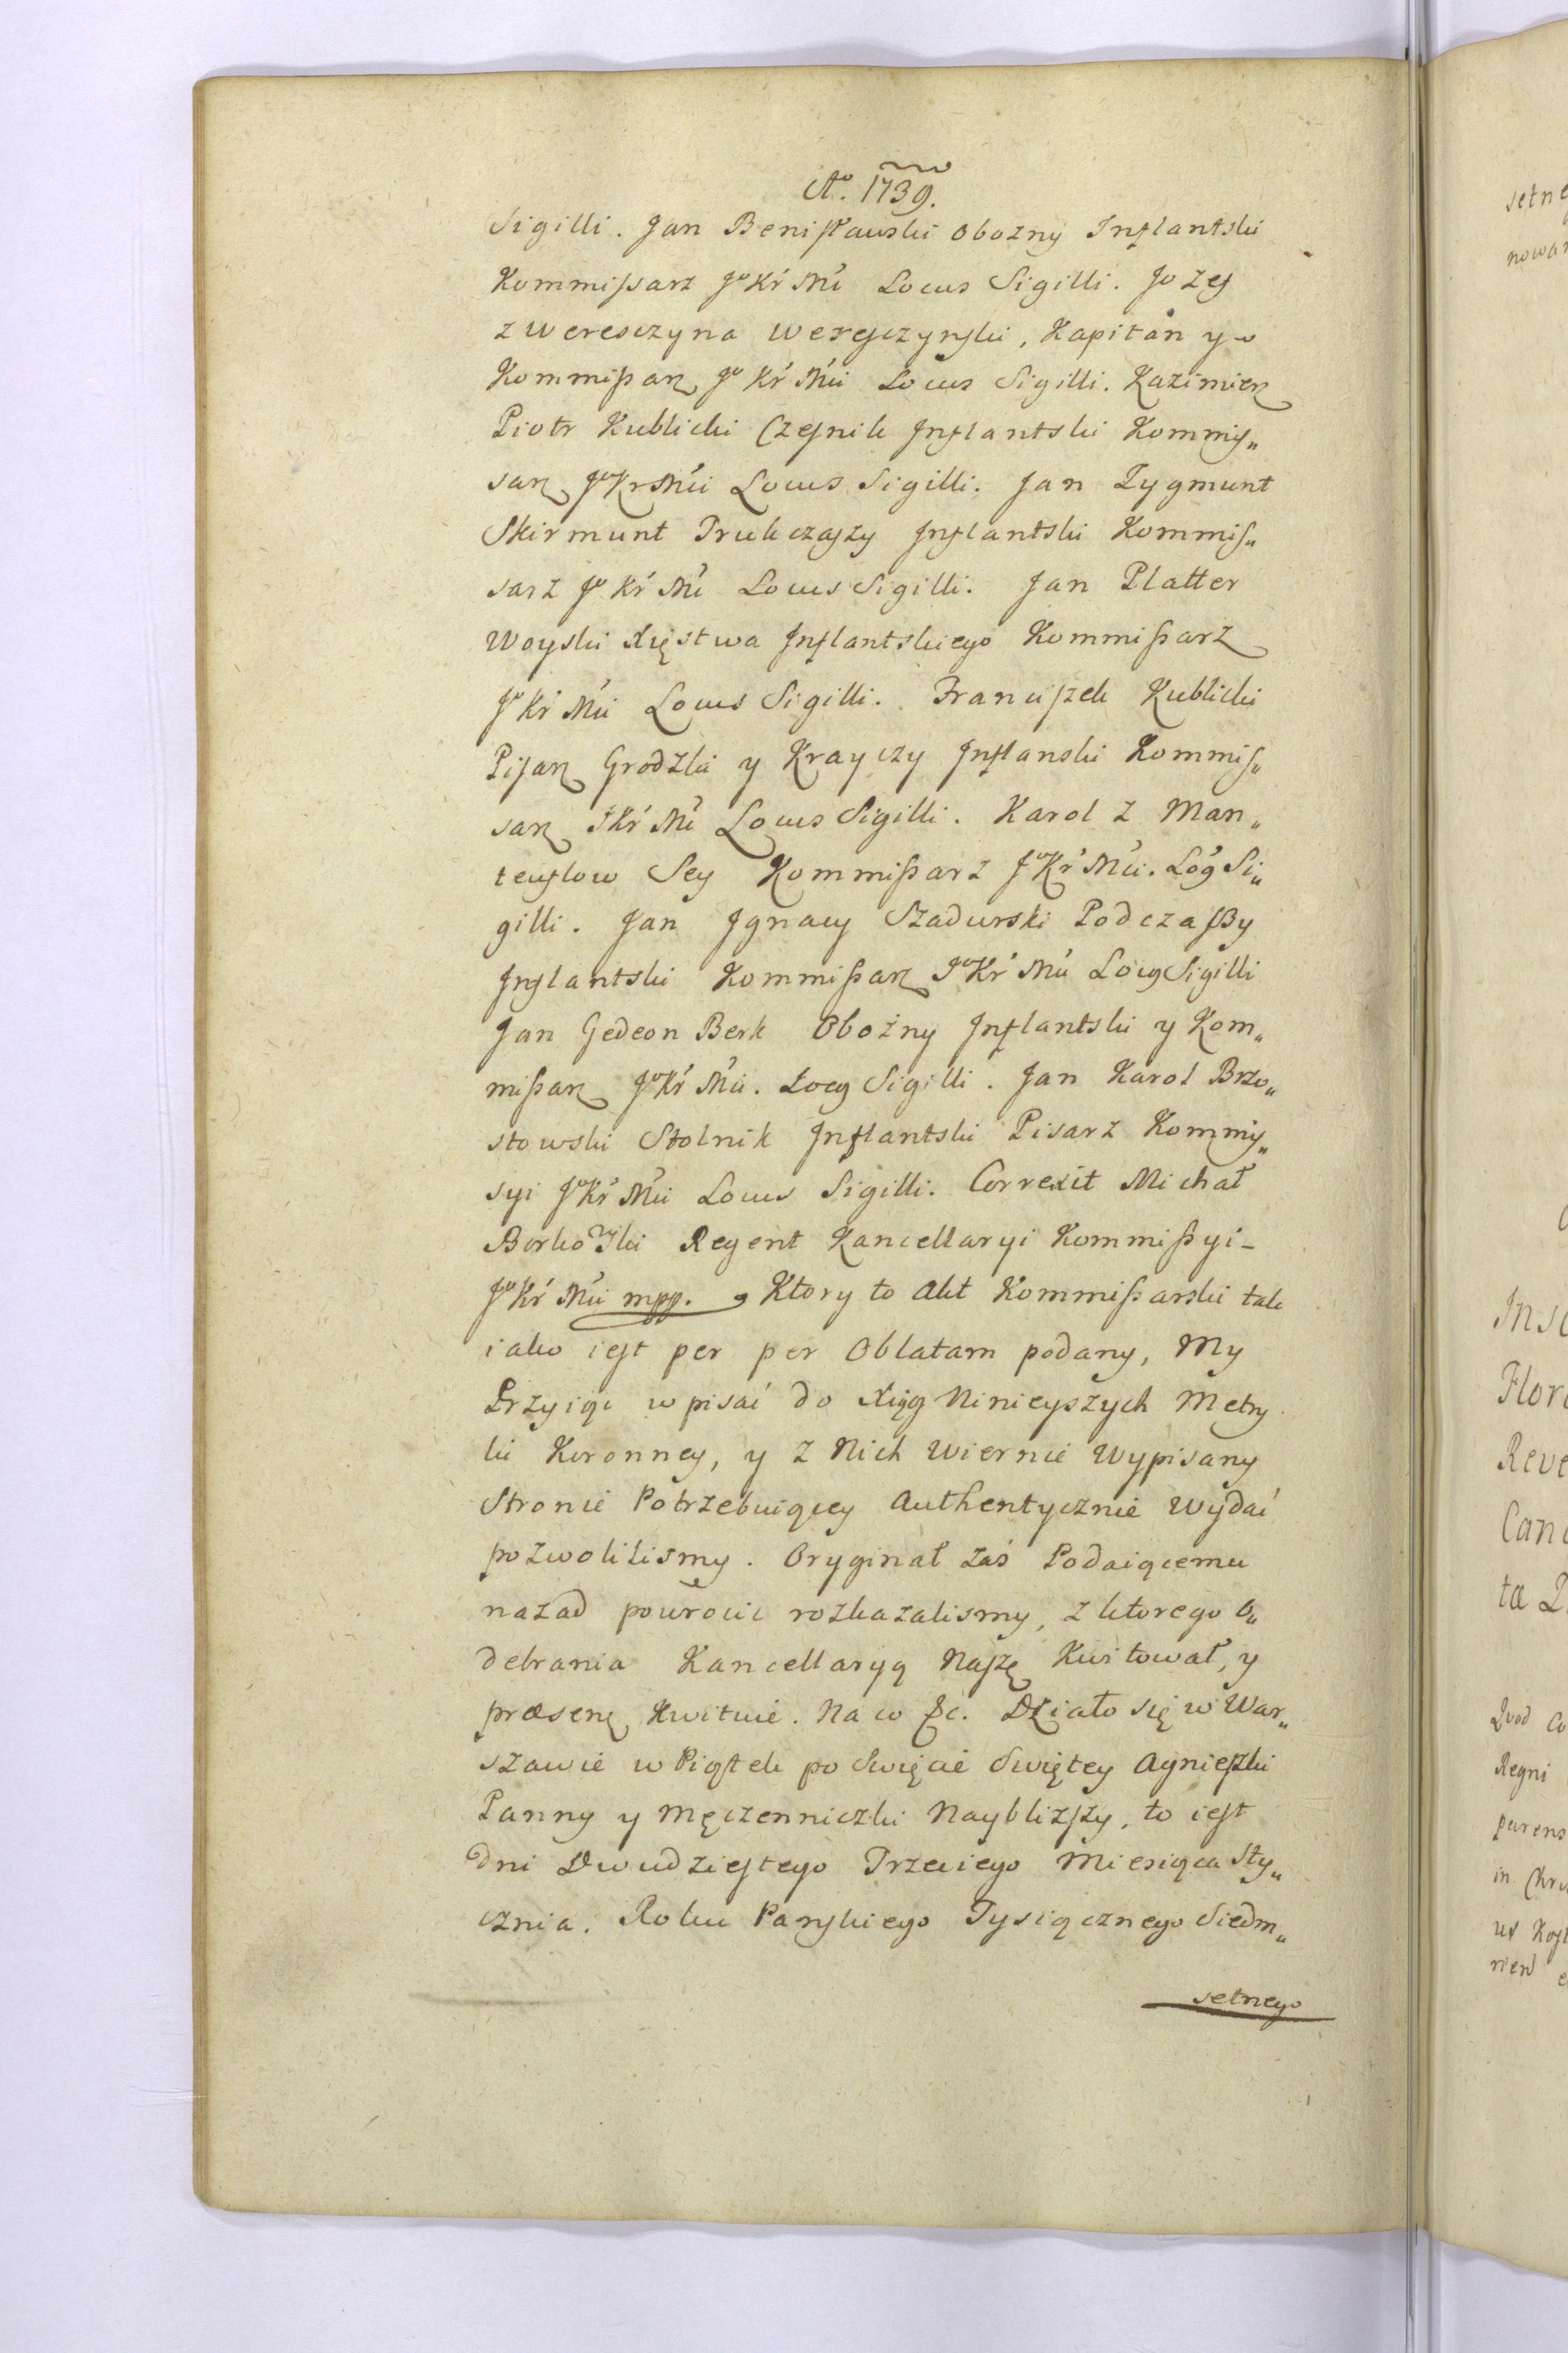 Ao. 1739.
Sigilli. Jan Benisławski Obozny Inflantski
Kommissarz Jo Kr Mci Locus Sigilli. Jozef
z Weresczyna Weresczynski, Kapitan y
Kommissarz Jo Kr Mci Locus Sigilli. Kazimierz
Piotr Kublicki Czesnik Inflantski Kommis„
sarz Jo Kr Mci Locus Sigilli. Jan Zygmunt
Skirmunt Trukczaszy Inflantski Kommis„
sarz Jo Kr Mci Locus Sigilli. Jan Platter
Woyski Xięstwa Inflantskiego Kommissarz
Jo Kr Mci Locus Sigilli. Franciszek Kublicki
Pisarz Grodzki y Krayczy Inflanski Kommis„
sarz JKr Mci Locus Sigilli. Karol z Man„
teuflow Sey Kommissarz Jo Kr Mci. Locg Si„
gilli. Jan Ignacy Szadurski Podczassy
Inflantski Kommissarz Jo Kr Mci Locg Sigilli
Jan Gedeon Berk Obożny Inflantski y Kom„
missarz Jo Kr Mci. Locg Sigilli. Jan Karol Brzo„
stowski Stolnik Inflantski Pisarz Kommis„
syi Jo Kr Mci Locus Sigilli. Correxit Michał
Borkowski Regent Kancellaryi Kommissyi -
Jo Kr Mci mpp. Ktory to Akt Kommissarski tak
iako iest per per Oblatam podany, My
Przyiąc wpisać do Xiąg Ninieyszych Metry
ki Koronney, y z Nich Wiernie Wypisany
Stronie Potrzebuiącey Authentycznie Wydać
pozwolilismy. Oryginał zaś Podaiącemu
nazad powrocic rozkazalismy, z ktorego O„
debrania Kancellaryą Naszę Kwitował, y
præsenę Kwituie. Na co &c. Działo się w War„
szawie w Piątek po Swięcie Swiętey Agnieszki
Panny y Męczenniczki Nayblizszy, to iest
dni Dwudziestego Trzeciego Miesiąca Sty„
cznia. Roku Panskiego Tysiącznego Siedm„
setnego